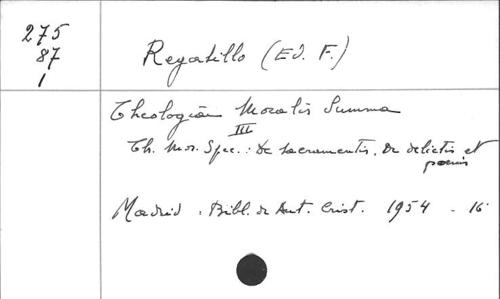 275
87
1
Regatillo (Ed. F.)
Theologiae Moralis Summa
III
Th. Mor. Spec. : De sacramentis. De delictis et
poenis
Madrid : Bibl. de Aut. Crist. 1954 - 16